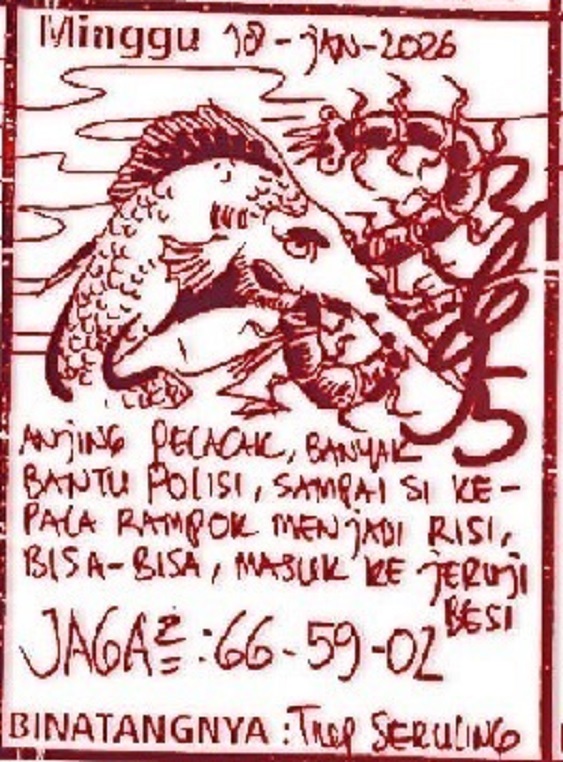 Minggu 18-JAN-2026
ANJING PELACAK, BANYAK
BANTU POLISI, SAMPAI SI KE-
PALA RAMPOK MENJADI RISI,
BISA-BISA, MASUK KE JERUJI
BESI
JAGA2 : 66-59-02
BINATANGNYA : SERULING